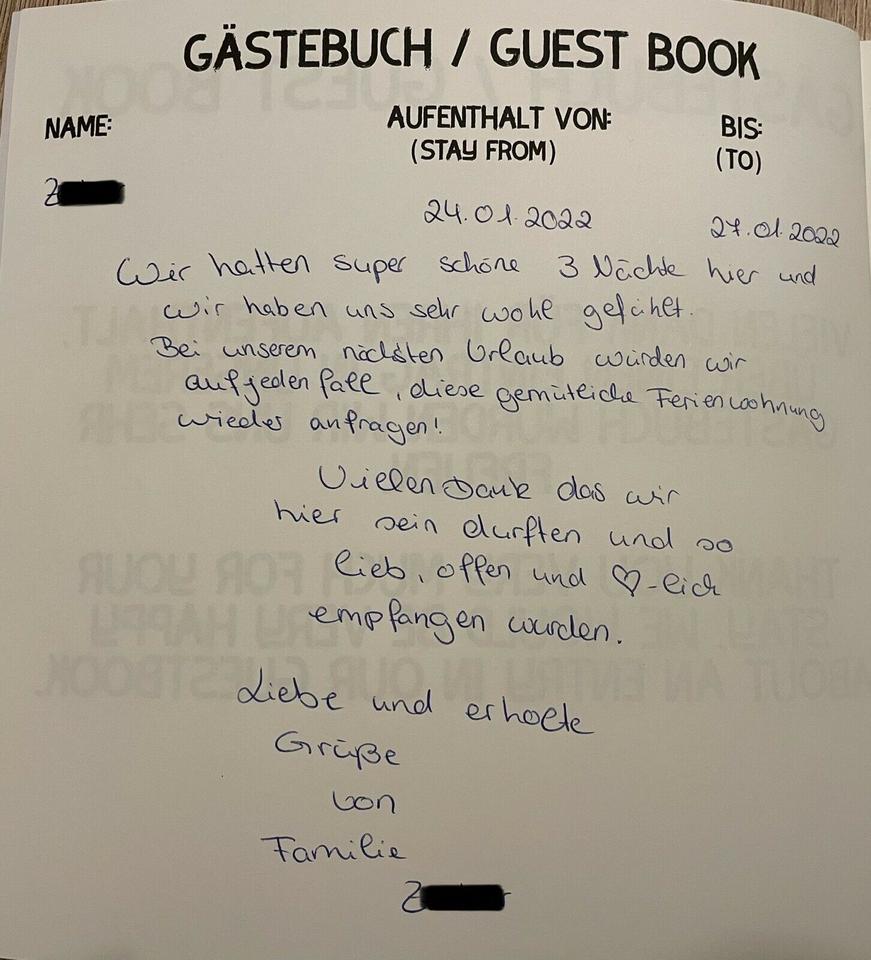 GÄSTEBUCH / GUEST BOOK
NAME: AUFENTHALT VON: BIS:
(STAY FROM) (TO)
Z
24.01.2022 27.01.2022
Wir hatten super schöne 3 Nächte hier und
wir haben uns sehr wohl gefühlt.
Bei unserem nächsten Urlaub würden wir
auf jeden fall, diese gemütliche Ferienwohnung
wieder anfragen!
Vielen Dank das wir
hier sein durften und so
lieb, offen und ♡-lich
empfangen wurden.
Liebe und erholte
Grüße
von
Familie
Z